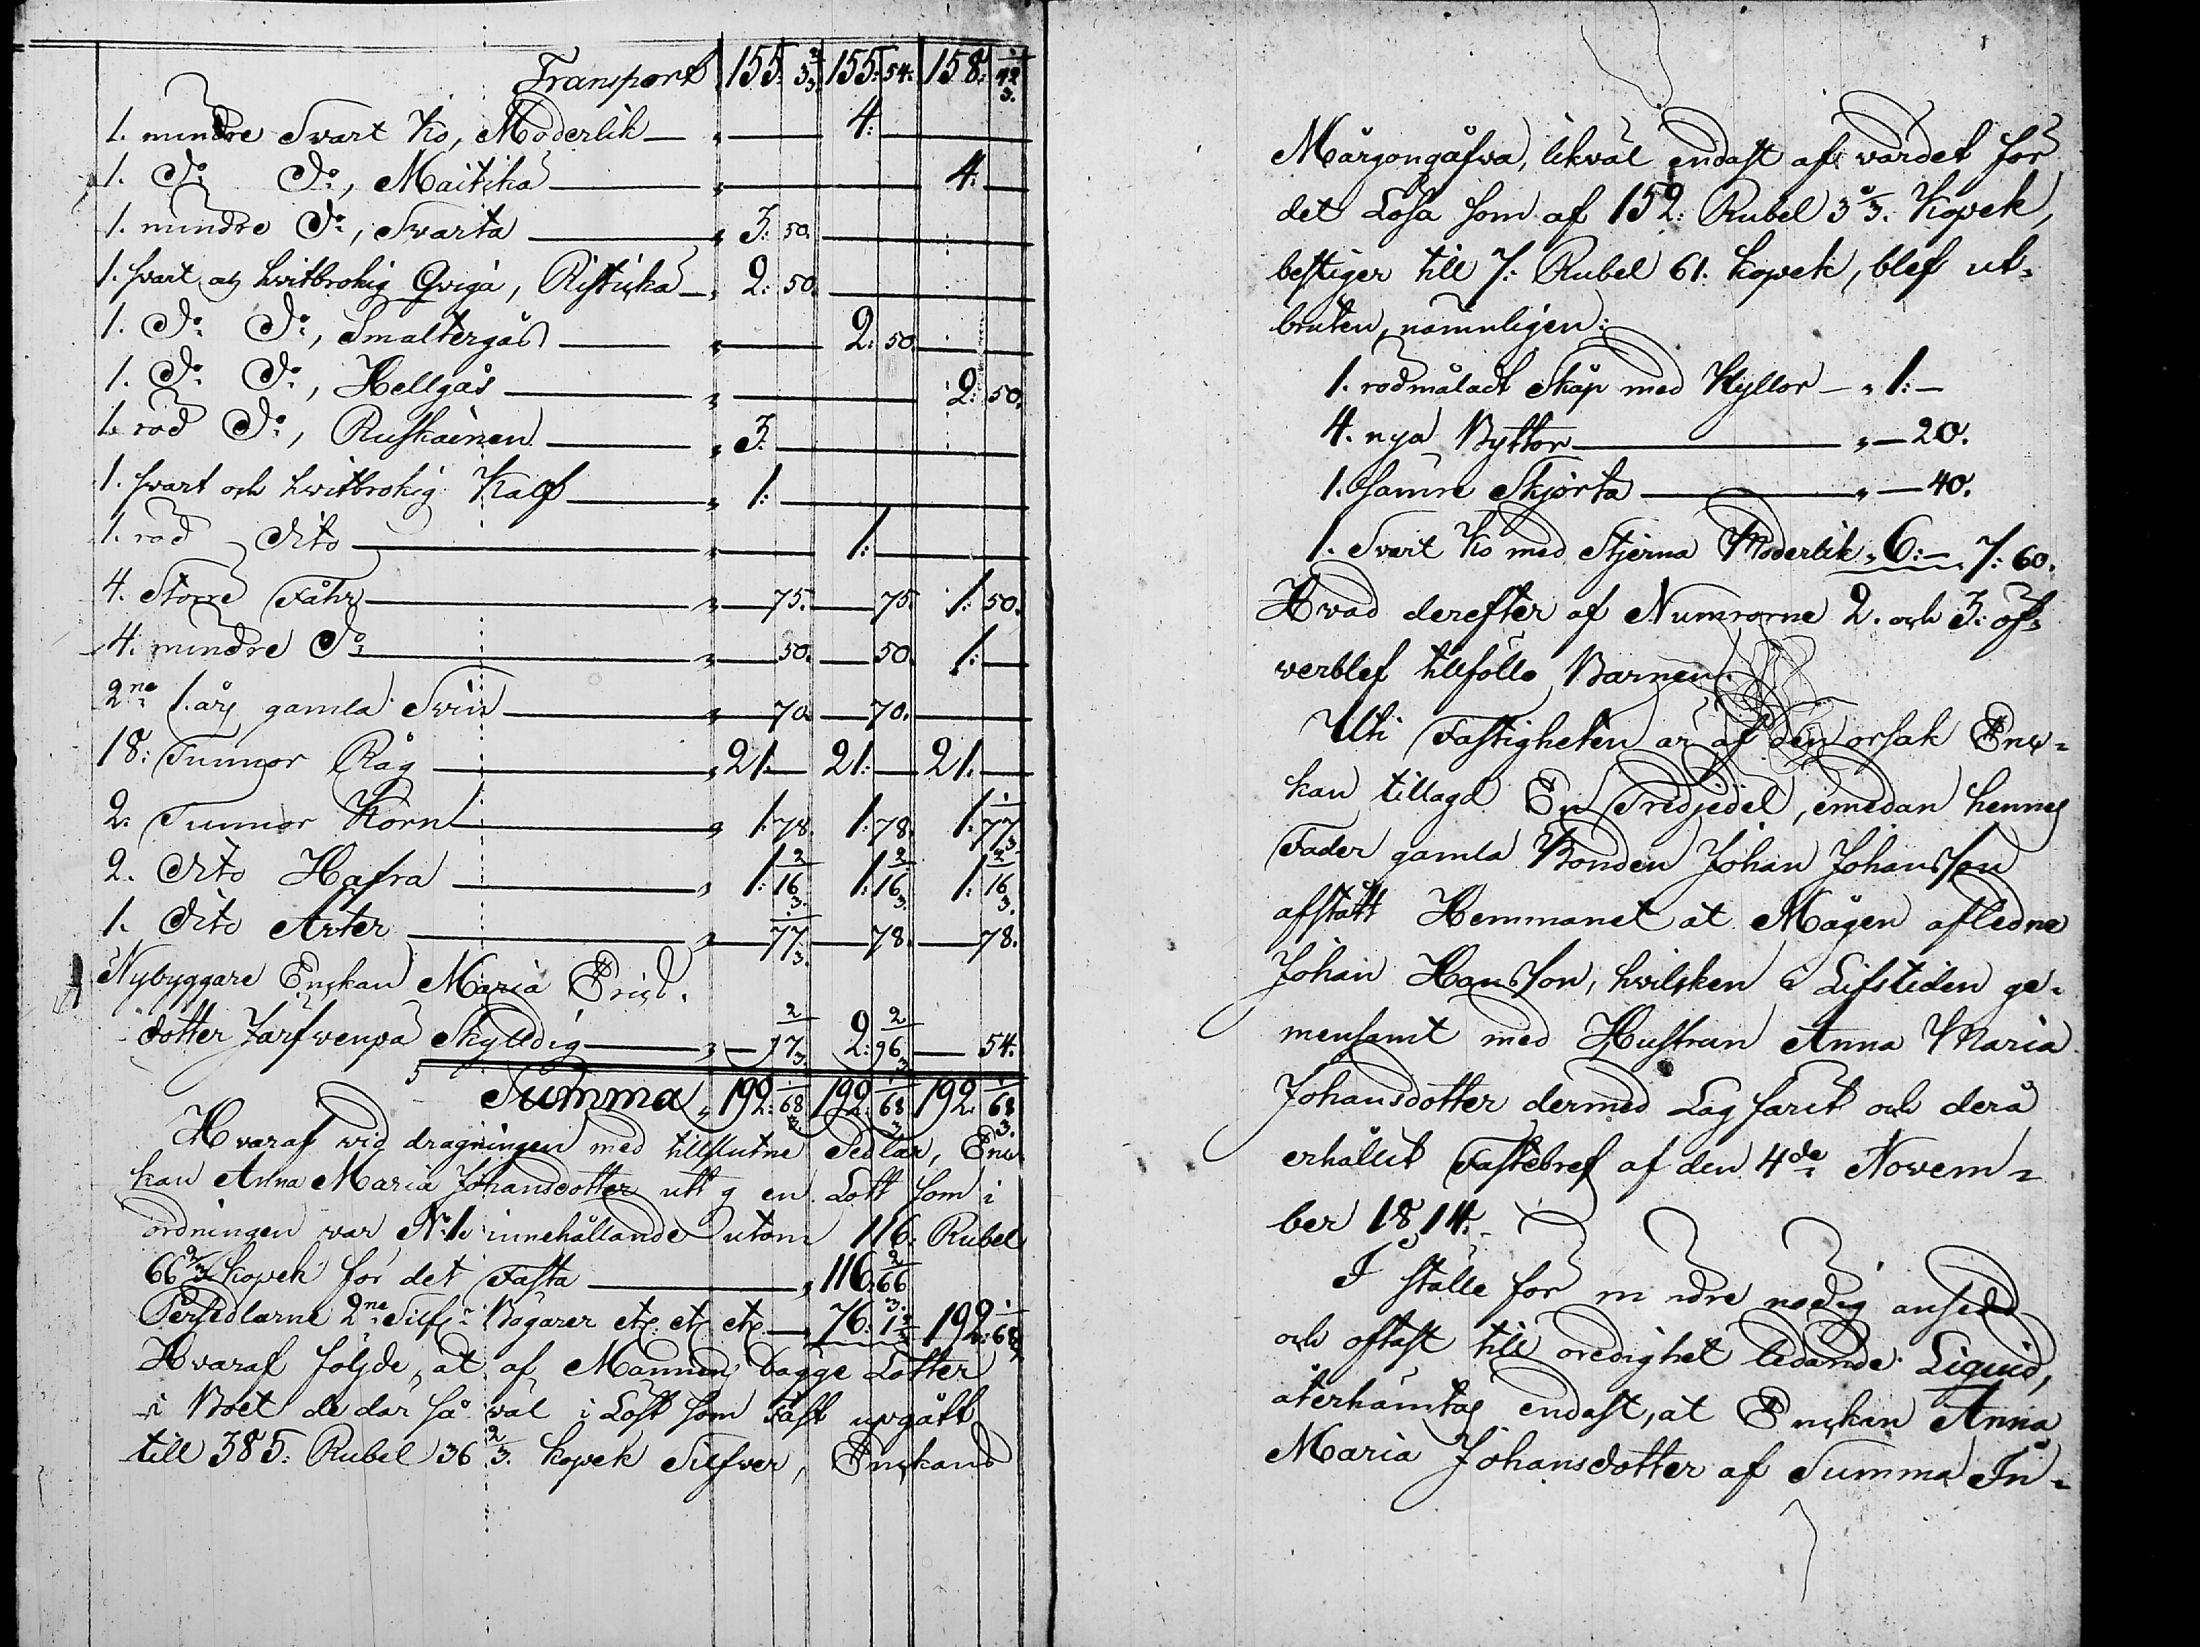 Transport 155: 3 2/3. 155: 54. 158: 42 1/3.
1. mindre Svart Ko, Moderlik — 4:
1. Do Do, Maitika — 4.
1. mindre Do, Svarta — 3: 50.
1. svart och hvitbrokig Qviga, Risticka — 2: 50.
1. Do Do, Smaltergås — 2: 50.
1. Do Do, Hellgås — 2: 50.
1. röd Do, Ruskainen — 3.
1. svart och hvitbrokig Kalf — 1:
1. röd dito — 1:
4. Större Fåhr — 75. — 75. 1: 50.
4. mindre Do — 50. — 50. 1:
2ne 1. års gamla Svin — 70. — 70.
18: Tunnor Råg — 21. 21: 21.
2. Tunnor Korn — 1: 78. 1: 78. 1: 77 1/3.
2. dito Hafra — 1: 16 2/3. 1: 16 2/3. 1: 16 2/3.
1. dito Ärter — 77 1/3. — 78. — 78.
Nybyggare Enckan Maria Erics-
dotter Jarfwenpä Skyldig — 17 2/3. 2: 96 2/3. — 54.
Summa 192: 68 1/3. 192: 68 1/3. 192: 68 1/3.
Hvaraf vid dragningen med tillslutne Sedlar, Enc-
kan Anna Maria Johansdotter uttog en Lott som i
ordningen var No 1. innehållande utom 116: Rubel
66 2/3 kopek för det Fasta — 116: 66 2/3.
Persedlarne 2ne Silf. Bägarer etc. etc. etc. — 76: 1 2/3 192: 68 1/3
Hvaraf följde, at af Mannens bägge Lotter
i Boet de där så väl i Löst som Fast upgått
till 385: Rubel 36 2/3. kopek Silfver, Enckans
Mårgongåfva, likväl endast af värdet för
det Lösa som af 152: Rubel 3 1/3. Kopek,
bestiger till 7: Rubel 61. kopek, blef ut-
bruten, nämnligen:
1. rödmåladt Skåp med Hyllor — 1: —
4. nya Byttor — 20.
1. sämre Skjorta — 40.
1. Svart Ko med Stjerna Moderlik 6: — 7: 60.
Hvad derefter af Numrorne 2. och 3: öf-
verblef tillfölle Barnen.
Uti Fastigheten är af den orsak Enc-
kan tillagd En Tredjedel, emedan hennes
Fader gamla Bonden Johan Johansson
afstått Hemmanet at Mågen afledne
Johan Hansson, hvilcken i Lifstiden ge-
mensamt med Hustrun Anna Maria
Johansdotter dermed Lagfarit och derå
erhållit Fastebref af den 4de Novem-
ber 1814.
I ställe för mindre nödig ansedd
och oftast till oredighet ledande Liquid,
återhämtas endast, at Enckan Anna
Maria Johansdotter af Summa In-